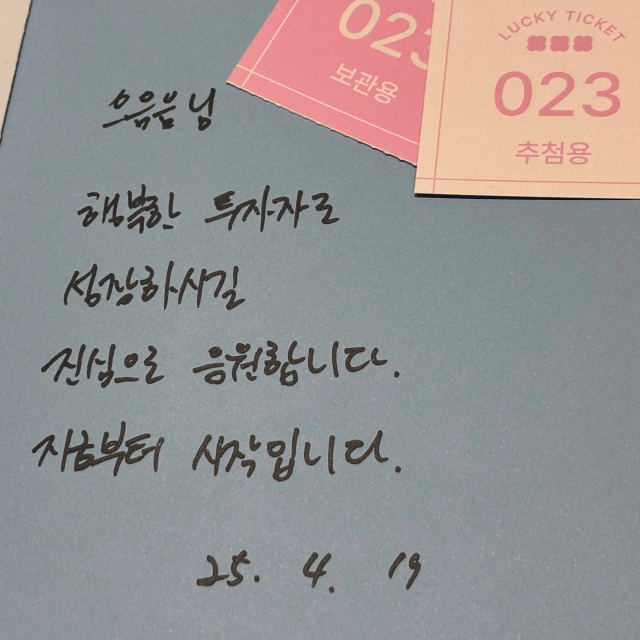 023
보관용
LUCKY TICKET
023
추첨용
오유음님
행복한 투자자로
성장하시길
진심으로 응원합니다.
지금부터 시작입니다.
25. 4. 19